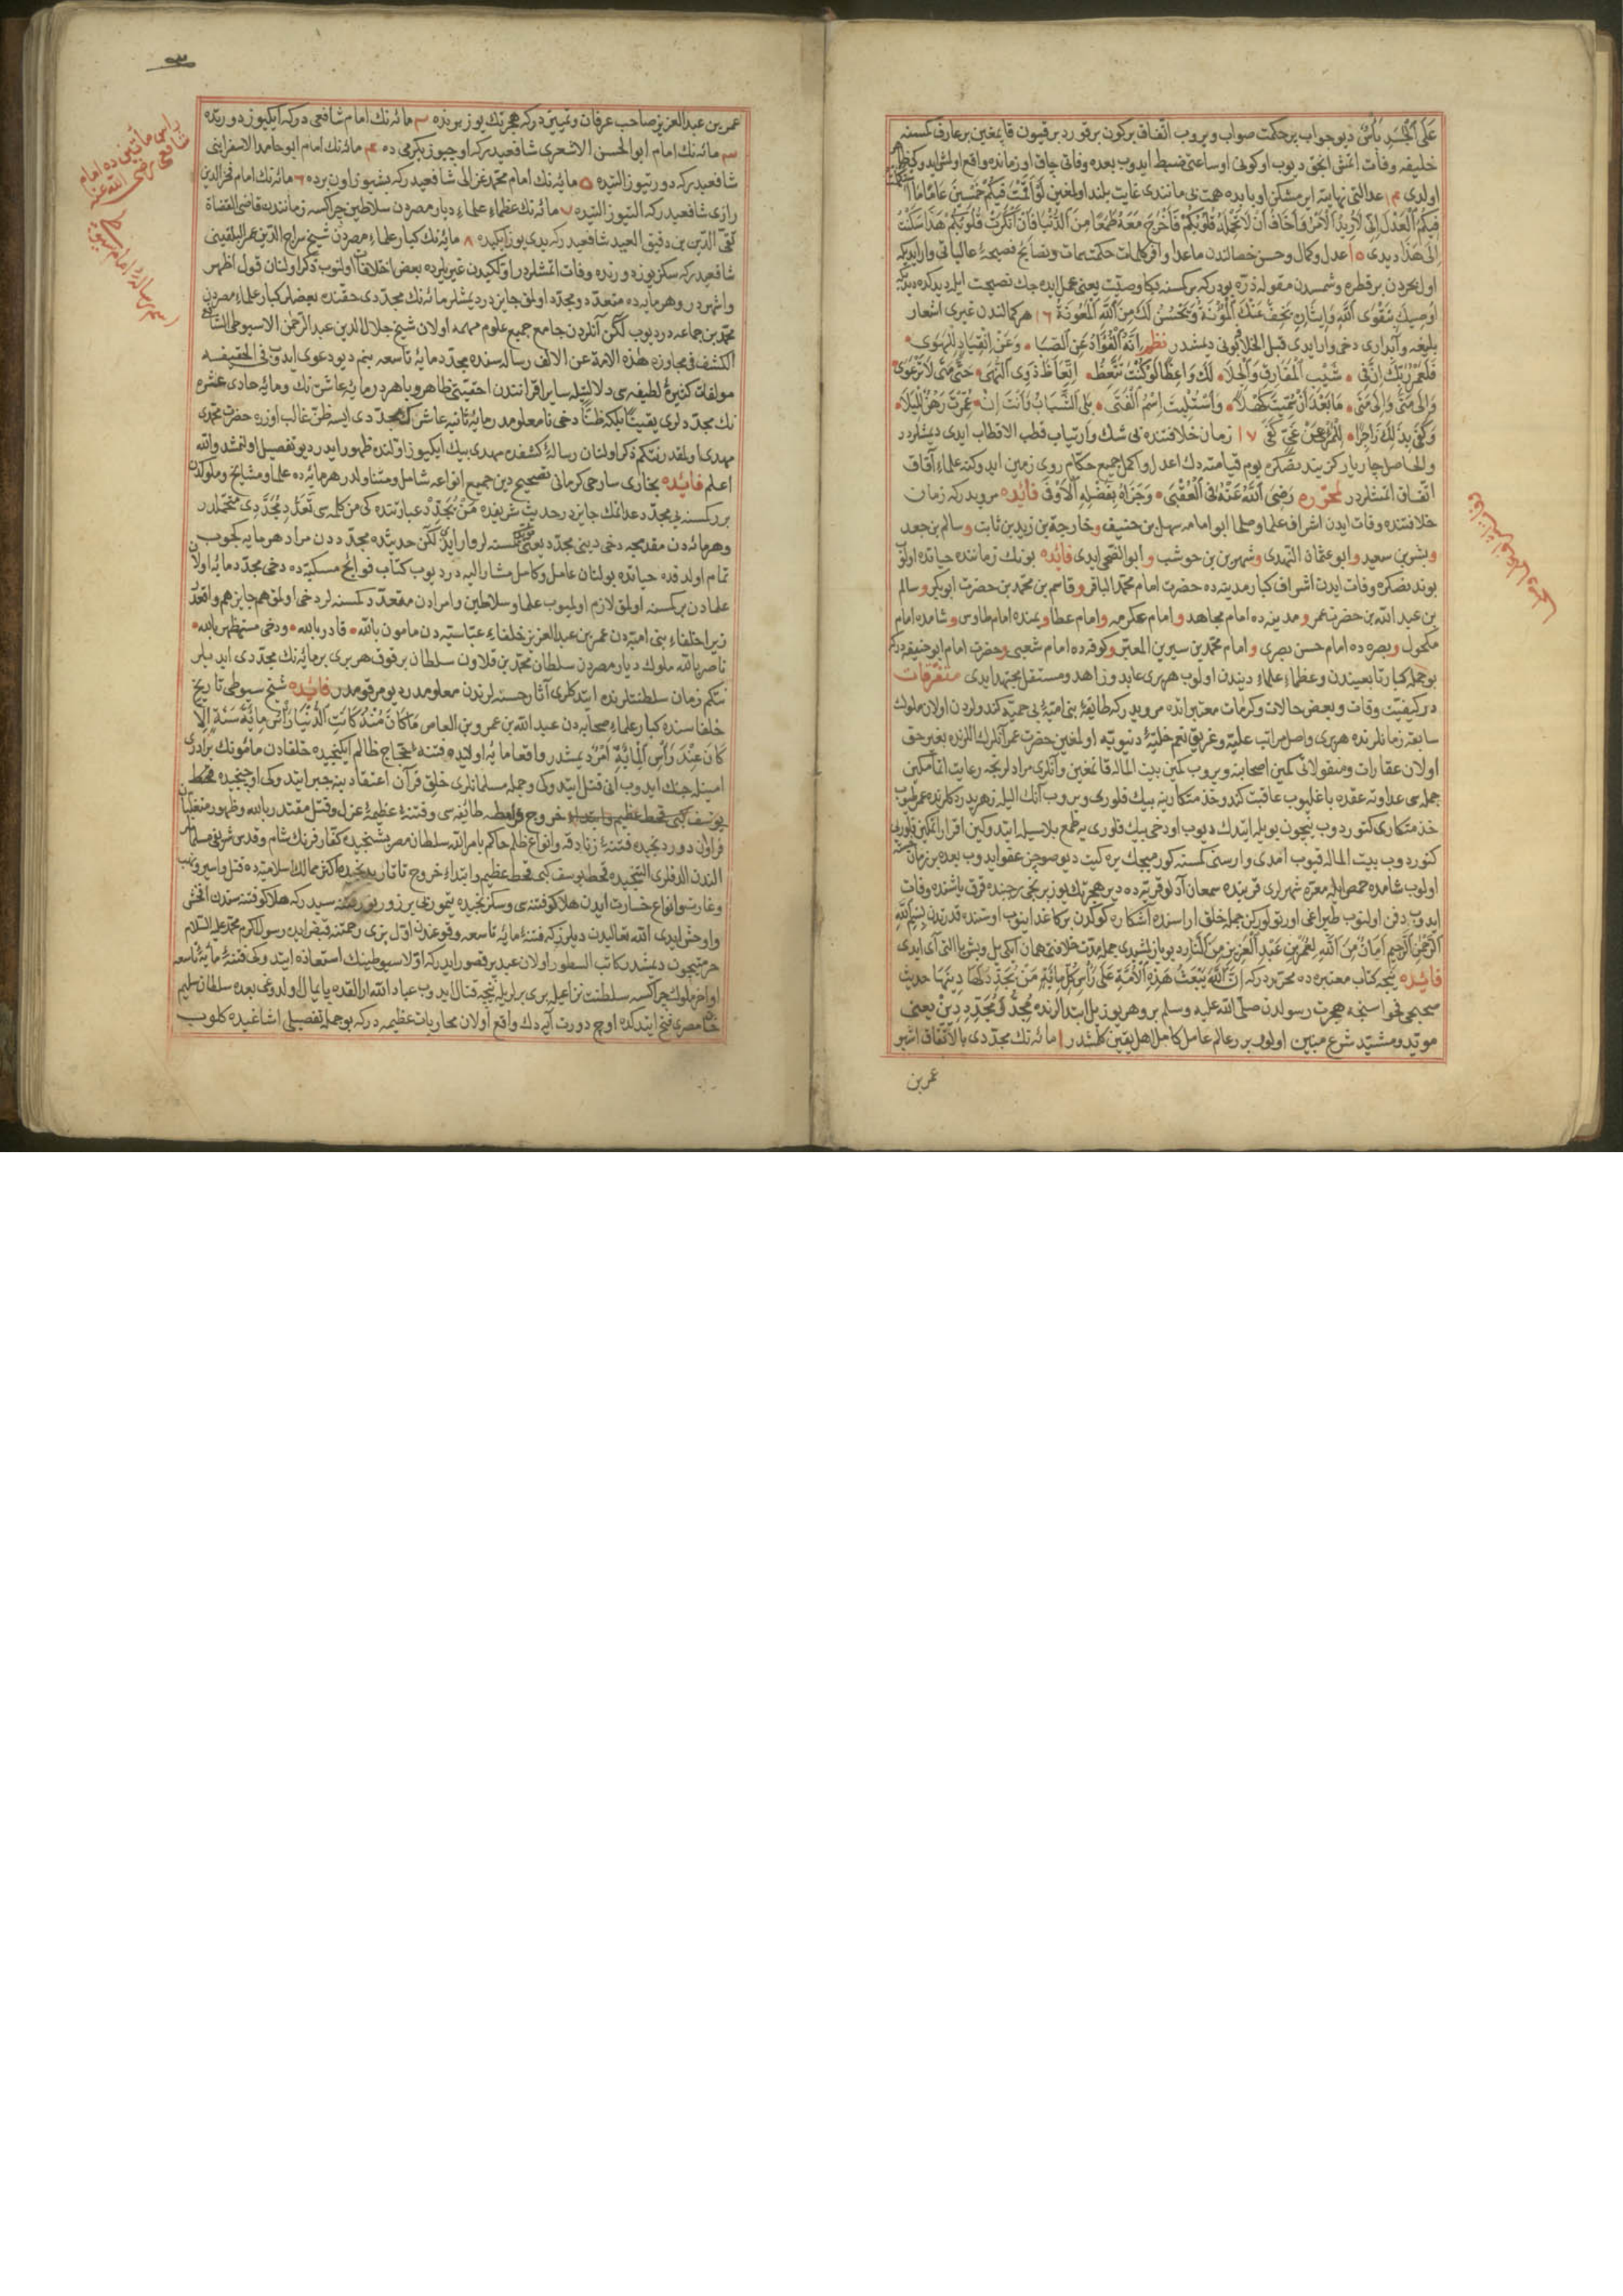 على الجسد بأس ديو جواب پر حكمت صواب ويروب اتفاق بر كون بر قورد بر قيون قاپمغين بر عارف كمسنه
خليفه وفات اتمش انجق ديوب اول كونى اول ساعتى ضبط ايدوب بعده وفاتى چاق اول زمانده واقع اولمش ايدوكى ظاهر
اولدى عدالتى نهايتنه ايرمشكن او بابده همت بى مانندى غايت بلند اولمغين لو اقمت فيكم خمسين عاما ما استكملت
فيكم العدل انى لاريد الامر فاخاف ان لا تحمله قلوبكم فاخرج معه طمعا من الدنيا فان انكرت قلوبكم هذا سكنت
الى هذا ديدى ١٥ عدل وكمال وحسن خصالندن ماعدا وافر كلمات حكمت سمات ونصايح فصيحهٔ عاليباتى وار ايدى كه
اول بحردن بر قطره وشمسدن مقوله ذره بودركه بر كمسنه بكا وصيت يعنى عمل ايده جك نصيحت ايله ديدكده ديديكه
اوصيك بتقوى الله وايثاره تخف عنك المؤنة وتحسن لك من الله المعونة ١٦ هر كمالندن غيرى اشعار
بليغه وآبدارى دخى وار ايدى قبل الخلافه بونى ديمشدر نظم انه الفؤاد عن الصبا وعن انقياد للهوى
فلعمر ربك ان فى شيب المفارق والجلا لك واعظا لو كنت تتعظ اتعاظ ذوى النهى حتى متى لا ترعوى
والى متى والى متى ما بعد ان سميت كهلا واستلبت اسم الفتى بلى الشباب وانت ان عمرت رهن للبلا
وكفى بذلك زاجرا للمرء عن غى كفى ١٧ زمان خلافتنده بى شك وارتياب قطب الاقطاب ايدى ديمشلردر
والحاصل چار يار كزيندن صكره يوم قيامته دك اعدل واكمل جميع حكام روى زمين ايدوكنه علماء آفاق
اتفاق اتمشلردر لمحرره رضى الله عنه فى العقبى وجزاه بفضله الاوفى فائده مرويدر كه زمان
خلافتنده وفات ايدن اشراف علما وصلحا ابو امامه سهل بن حنيف وخارجة بن زيد بن ثابت وسالم بن جعد
وبشر بن سعيد وابو عثمان النهدى وشهر بن حوشب وابو الضحى ايدى فائده بونك زماننده حياتده اولوب
بوندنصكره وفات ايدن اشراف كبار مدينه ده حضرت امام محمد الباقر وقاسم بن محمد بن حضرت ابوبكر وسالم
بن عبد الله بن حضرت عمر ومدينه ده امام مجاهد وامام عكرمه وامام عطا ويمنده امام طاوس وشامده امام
مكحول وبصره ده امام حسن بصرى وامام محمد بن سيرين المعبر وكوفه ده امام شعبى وحضرت امام ابو حنيفه در كه
بو جمله كبار تابعيندن وعظماء علماء ديندن اولوب هربرى عابد وزاهد ومستقل مجتهد ايدى متفرقات
در كيفيت وفات وبعض حالات وكرامات معتبراتده مرويدر كه طائفهٔ بنى اميه بى حميه كندولردن اولان ملوك
سابقه زمانلرنده هربرى واصل مراتب عليه وغريق نعم جليلهٔ دنيويه اولمغين حضرت عمر آنلرك اللرنده بغير حق
اولان عقارات ومنقولاتى كمين اصحابنه ويروب كمين بيت الماله قاتمغين وآنلرى مرادلرنجه رعايت اتمامكين
جمله سى عداوتنه عقده باغليوب عاقبت كندو خدمتكارينه بيك فلورى ويروب آنك اليله زهر يدردكلرنده عمر طويوب
خدمتكارى كتوردوب نيچون بويله ايتدك ديوب اودخى بيك فلورى يه طمع بلاسيله ايتدوكين اقرار اتمكين فلورى يى
كتوردوب بيت الماله قيوب آمدى وار سنى كمسنه كورميجك يره كيت ديو صوچن عفو ايدوب بعده بر زمان خسته
اولوب شامده حمص ايله معره شهرلرى قربنده سمعان آدلو قريه ده دير هجرتك يوز برنجى رجبنده قرق ياشنده وفات
ايدوب دفن اولنوب طپراغى اورتولوركن جمله خلق اراسنده آشكاره كوكدن بر كاغد اينوب اوستنده قدرتدن بسم الله
الرحمن الرحيم امان من الله لعمر بن عبد العزيز من النار ديو يازلمشدى جمله مدت خلافتى همان ايكى يل وبش ياالتى آى ايدى
فائده نيچه كتاب معتبره ده محرردر كه ان الله يبعث هذه الامة على رأس كل مائة من يجدد لها دينها حديث
صحيحى فحواسنجه هجرت رسولدن صلى الله عليه وسلم بر وهر يوز يل ابتدالرنده مجدد دين يعنى
مؤيد ومشيد شرع مبين اولور بر عالم عامل كامل اهل يقين كلمشدر ١ مائه نك مجددى بالاتفاق اشبو
عمر بن
عمر بن عبد العزيز صاحب عرفان وتمييزدر كه هجرتك يوز برنده ٢ مائه نك امام شافعى در كه ايكيوز دورتده
٣ مائه نك امام ابو الحسن الاشعرى شافعيدر كه اوچيوز يكرمى ده ٤ مائه نك امام ابو حامد الاسفراينى
شافعيدر كه دورتيوز التيده ٥ مائه نك امام محمد غزالى شافعيدر كه بشيوز اون برده ٦ مائه نك امام فخر الدين
رازى شافعيدر كه التيوز التيده ٧ مائه نك عظماء علماء ديار مصردن سلاطين چراكسه زماننده قاضى القضاة
تقى الدين بن دقيق العيد شافعيدر كه يدى يوز ايكيده ٨ مائه نك كبار علماء مصردن شيخ سراج الدين عمر البلقينى
شافعيدر كه سكز يوز دورتده وفات اتمشلردر اولكيدن غيريلرده بعض اختلافات اولنوب ذكر اولنان قول اظهر
واشهردر وهر مايه ده متعدد ومجدد اولمق جايزدر ديمشلر مائه نك مجددى حقنده بعضلر كبار علماء مصردن
محمد بن جماعه در ديوب لكن آنلردن جامع جميع علوم مهمه اولان شيخ جلال الدين عبد الرحمن الاسيوطى الشافعى
الكشف فى مجاوزة هذه الامة عن الالف رساله سنده مجدد مايهٔ تاسعه بنم ديو دعوى ايدوب فى الحقيقه
مولفات كثيرهٔ لطيفه سى دلالتيله ساير اقرانندن احقيتى ظاهر وباهردر مايهٔ عاشرنك ومايهٔ حادى عشره
نك مجددلرى يقينا بلكه ظنا دخى نامعلومدر مايهٔ ثانيه عاشرك مجددى ايسه ظن غالب اوزره حضرت محمد
مهدى اولمقدر نتكم ذكر اولنان رسالهٔ كشفده مهدى بيك ايكيوز اولنده ظهور ايدر ديو تفصيل اولنمشدر والله
اعلم فائده بخارى شارحى كرمانى تصحيح دين جميع انواعه شامل ومتناولدر هر مائه ده علما ومشايخ وملوكدن
برر كمسنه يى مجدد عد اتمك جايزدر حديث شريفده من يجدد عبارتنده كى من كلمه سى تعدد مجددى متحملدر
وهر مائه دن مقدمجه دخى دينى مجدد يعنى كمسنه لر وار ايدى لكن حديثده مجدددن مراد هر مايه كچوب
تمام اولدقده حياتده بولنان عامل وكامل مشار اليه در ديوب كتاب فوايح مسكيه ده دخى مجدد مايه اولان
علمادن بر كمسنه اولمق لازم اولميوب علما وسلاطين وامرادن متعدد كمسنه لر دخى اولمق هم جايز هم واقعدر
زيرا خلفاء بنى اميه دن عمر بن عبد العزيز خلفاء عباسيه دن مامون بالله قادر بالله ودخى مستظهر بالله
ناصر بالله ملوك ديار مصردن سلطان محمد بن قلاون سلطان برقوق هربرى بر مائه نك مجددى ايديلر
نتكم زمان سلطنتلرنده ايتدكلرى آثار حسنه لرندن معلومدر ديو مرقومدر فائده شيخ سيوطى تاريخ
خلفاسنده كبار علماء صحابه دن عبد الله بن عمرو بن العاص ما كان منذ كانت الدنيا رأس مائة سنة الا
كان عند رأس المائة امر ديمشدر واقعا مايهٔ اولاده فتنهٔ حجاج ظالم ايكنجيده خلفادن مأمونك برادرى
امينله جنك ايدوب آنى قتل ايتدوكى وجمله مسلمانلرى خلق قرآن اعتقادينه جبر ايتدوكى اوچنجيده قحط
يوسف كبى قحط عظيم وابتداء خروج قرامطه طائفه سى وفتنهٔ عظيمهٔ عزل وقتل مقتدر بالله وظهور متغلبان
فراوان دوردنجيده فتنهٔ زنادقه وانواع ظلم حاكم بامر الله سلطان مصر بشنجيده كفار فرنك شام وقدس شريفى مسلمانلر
الندن الدقلرى التنجيده قحط يوسف كبى قحط عظيم وابتداء خروج تاتار يدنجيده اكثر ممالك اسلاميه ده قتل واسير ونهب
وغارت وانواع خسارت ايدن هلاكو فتنه سى وسكزنجيده تيمور بى زور فتنه سيدر كه هلاكو فتنه سندن افحش
واوحش ايدى الله تعاليدن ديلرز كه فتنهٔ مايهٔ تاسعه وقوعندن اول بزى رحمتنه قبض ايده رسول اكرم محمد عليه السلام
حرمتيچون ديمشدر كاتب السطور اولان عبد پر قصور ايدر كه اولا سيوطينك استعاذه ايتدوكى فتنهٔ مايهٔ تاسعه
اواخر ملوك چراكسه سلطنت نزاعيله بربريله نيچه قتال ايدوب عباد الله ارالقده پايمال اولدوغى بعده سلطان سليم
خان مصرى فتح ايتدكده اوچ دورت آيه دك واقع اولان محاربات عظيمه در كه بو جمله تفصيلى اشاغيده كلوب
راس مأتين ده امام
شافعى رضى الله عنه